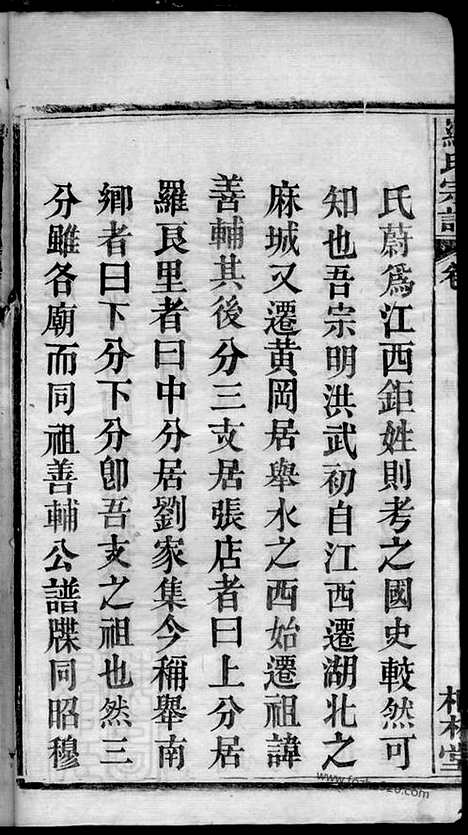 羅氏宗譜 卷
氏蔚爲江西鉅姓則考之國史較然可
知也吾宗明洪武初自江西遷湖北之
麻城又遷黃岡居舉水之西始遷祖諱
善輔其後分三支居張店者曰上分居
羅良里者曰中分居劉家集今稱舉南
鄉者曰下分下分卽吾支之祖也然三
分雖各廟而同祖善輔公譜牒同昭穆
林堂